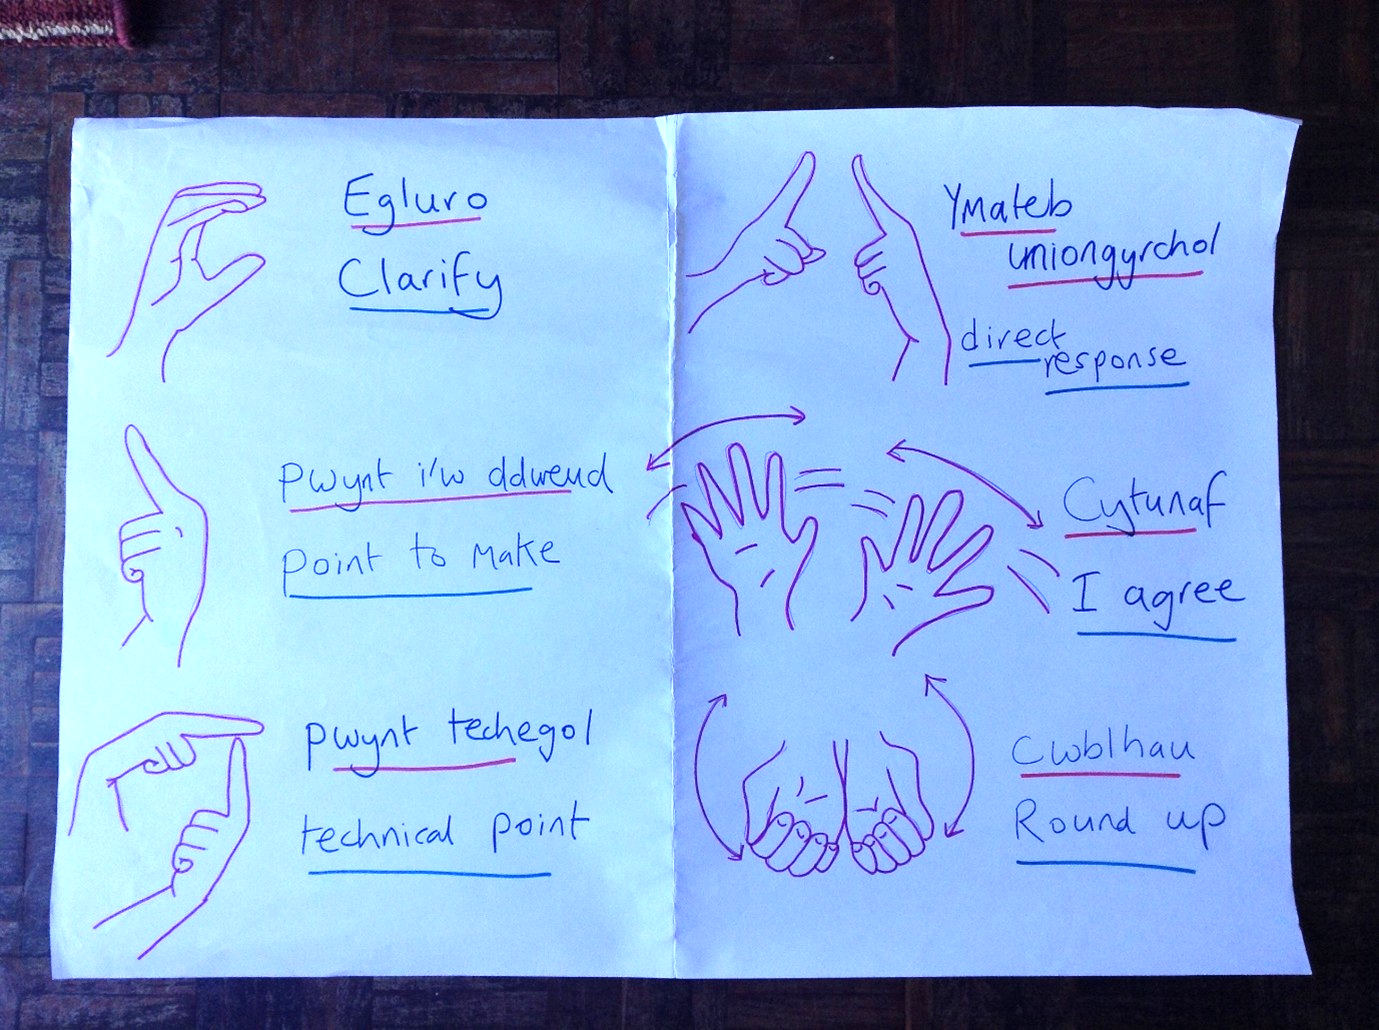 Egluro
Clarify
Pwynt i'w ddweud
Point to make
Pwynt techegol
technical point
Ymateb
uniongyrchol
direct
response
Cytunaf
I agree
Cwblhau
Round up